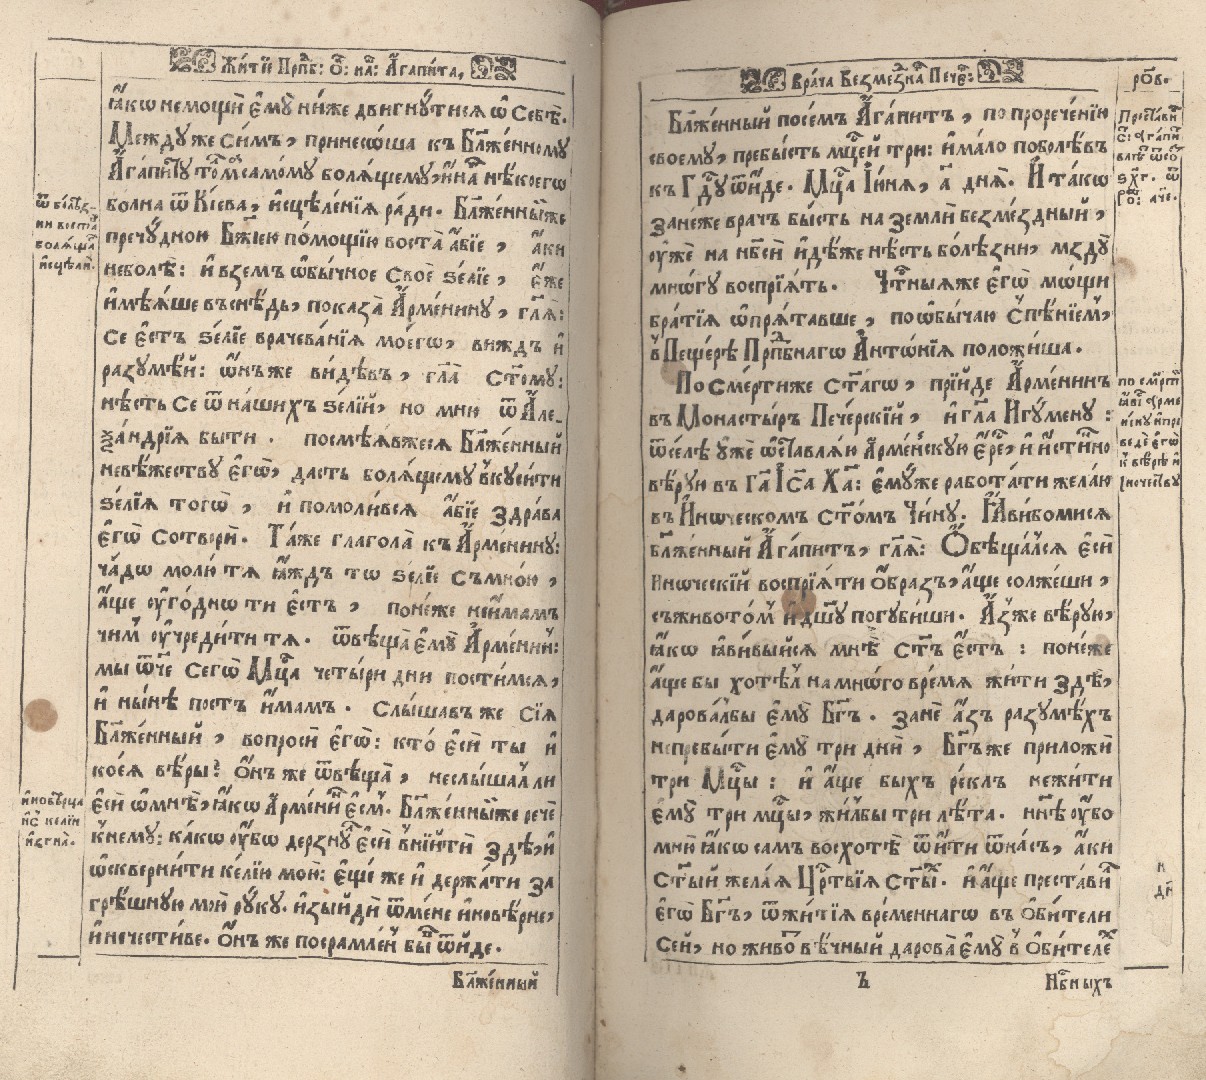 Жи́тїе Прп҃б: Ѻ҃: на́: А҆гапи́та,
ꙗ҆́кѡ немощи́ є҆мꙋ̀ ни́же дви́гнꙋтисѧ ѿ Себѣ̀.
Между́же Си́мъ, принесѡ́ша къ Бл҃же́нномꙋ
А҆гапи́тꙋ то́мꙋ самому боле́щему, и҆на нѣ́коегѡ
во́лна ѿ Кі́ева, и҆сцѣле́нїѧ ра́ди. Бл҃же́нный же
пречу́дною Бж҃їею по́мощїю воста̀ а҆́бїе, а҆́ки
неболѣ̀: и҆ взе́мъ ѡ҆бы́чное своѐ ѕе́лїе, є҆́же
и҆мѣ́ѧше въ снѣ́дь, показа̀ А҆рме́нину, гл҃ѧ:
се є҆́стъ ѕе́лїе врачева́нїѧ моегѡ̀, ви́ждъ и҆
разꙋмѣ́й: ѻ҆́нъ же ви́дѣвъ, гл҃а ст҃о́му:
нѣ́сть се ѿ на́шихъ ѕе́лїй, но мню̀ ѿ А҆ле-
ѯа́ндрїѧ бы́ти. посмѣѧ́вжесѧ Бл҃же́нный
невѣ́жеству є҆гѡ̀, да́сть болѧ́щему вкꙋси́ти
ѕе́лїѧ тогѡ̀, и҆ помоли́всѧ а҆́бїе здра́ва
є҆гѡ̀ сотворѝ. Та́же глагола̀ къ А҆рмени́ну:
ча́дѡ молю́ тѧ ꙗ҆́ждъ тѡ ѕе́лїе съ мно́ю,
а҆́ще оу҆го́днѡ ти є҆́стъ, поне́же не и҆́мамъ
чи́мъ оу҆чреди́ти тѧ. ѿвѣща̀ є҆мꙋ̀ А҆рме́нинъ:
мы ѿ́че сегѡ̀ Мц҃а четы́ри дни пости́мсѧ,
и҆ ны́нѣ по́стъ и҆́мамъ. слы́шавъ же сїѧ̀
Бл҃же́нный, вопросѝ є҆гѡ̀: кто́ є҆сѝ ты и҆
ко́еѧ вѣ́ры? ѻ҆́нъ же ѿвѣща̀, неслы́шалъ ли
є҆сѝ ѡ҆ мнѣ̀, ꙗ҆́кѡ А҆рме́нинъ є҆́смъ. Бл҃же́нный же речѐ
к немꙋ̀: ка́кѡ оу҆́бѡ дерзнꙋ́лъ є҆сѝ вни́йти здѣ̀, и҆
ѡ҆скверни́ти ке́лїю мою̀: є҆ще́ же и҆ держа́ти за
грѣ́шную мою̀ рꙋ́ку. и҆зы́йди ѿ менѐ и҆новѣ́рне,
и҆ нечести́ве. ѻ҆́нъ же посрамле́нъ бы́въ ѿи́де.
Бл҃же́нный
ѿ болѣ́з-
ни воста̀
болѧ́ща
и҆сцѣлѝ.
и҆новѣ́рца
и҆с ке́лїи
и҆згна̀.
Врача̀ Безме́здна Пече́р:
ро҃в.
Бл҃же́нный посе́мъ А҆га́питъ, по прорече́нїю
своемꙋ̀, пребы́сть мц҃ей три: и҆ ма́ло поболѣ́въ
къ Гд҃у ѿи́де. Мц҃а І҆ю́нѧ, а҃ днѧ̀. И҆ та́кѡ
зане́же вра́чъ бы́сть на землѝ безме́здный,
оу҆жѐ на нб҃сѝ и҆дѣ́же нѣ́сть болѣ́зни, мздꙋ̀
мнѡ́гу воспрїѧ́тъ. Чт҃ны́ѧ же є҆гѡ̀ мо́щи
бра́тїѧ ѡ҆прѧ́тавше, по ѡ҆бы́чаю съ пѣ́нїемъ,
в Пеще́рѣ Прпⷣбнагѡ А҆нтѡ́нїѧ положи́ша.
По сме́рти же ст҃а́гѡ, прїи́де А҆рме́нинъ
въ Монасты́ръ Пече́рскїй, и҆ гл҃а И҆гу́мену:
ѿсе́лѣ оу҆жѐ ѡ҆ставлѧ́ю А҆рме́нскую є҆́ре, и҆ и҆́стинно
вѣ́рую въ Гд҃а І҆и҃са Хр҃та: є҆мꙋ́же рабо́тати жела́ю
въ И҆́ноческомъ ст҃о́мъ Чи́ну. Ꙗ҆ви́бомисѧ
бл҃же́нный А҆га́питъ, гл҃ѧ: Ѻ҆бѣща́лсѧ є҆сѝ
и҆́ноческїй воспрїѧ́ти ѻ҆́бразъ, а҆́ще солже́ши,
съ живото́мъ и҆ дш҃у погуби́ши. А҆́зъ же вѣ́рую,
ꙗ҆́кѡ ꙗ҆ви́выйсѧ мнѣ̀ ст҃ъ є҆́стъ: поне́же
а҆́ще бы хотѣ́лъ на мнѡ́го вре́мѧ жи́ти здѣ̀,
дарова́лбы є҆мꙋ̀ Бг҃ъ. занѐ а҆́зъ разумѣ́хъ
непребы́ти є҆мꙋ̀ три днѝ, Бг҃ъ же приложѝ
три Мц҃ы: и҆ а҆́ще быхъ ре́клъ нежи́ти
є҆мꙋ̀ три мц҃ы, жи́лбы три лѣ́та. нн҃ѣ оу҆́бо
мни́ ꙗ҆́кѡ са́мъ восхотѣ̀ ѿити ѿ на́съ, а҆́ки
ст҃ы́й жела́ѧ Црⷭ҇твїѧ ст҃ы́хъ. и҆ а҆́ще преста́ви
є҆гѡ̀ Бг҃ъ, ѿ жи́тїѧ вре́меннагѡ въ ѻ҆би́тели
се́й, но живо́тъ вѣ́чный дарова̀ є҆мꙋ̀ в ѻ҆би́телехъ
Ъ
Нб҃ныхъ
Преста́ви
с: А҆гапи́т
в лѣ́т
ѿ
Ро: а҃че.
по сме́рти
ꙗ҆ви́сѧ А҆рме
нину и҆ при
ведѐ є҆гѡ̀
к вѣ́рѣ и҆
и҆ночеству